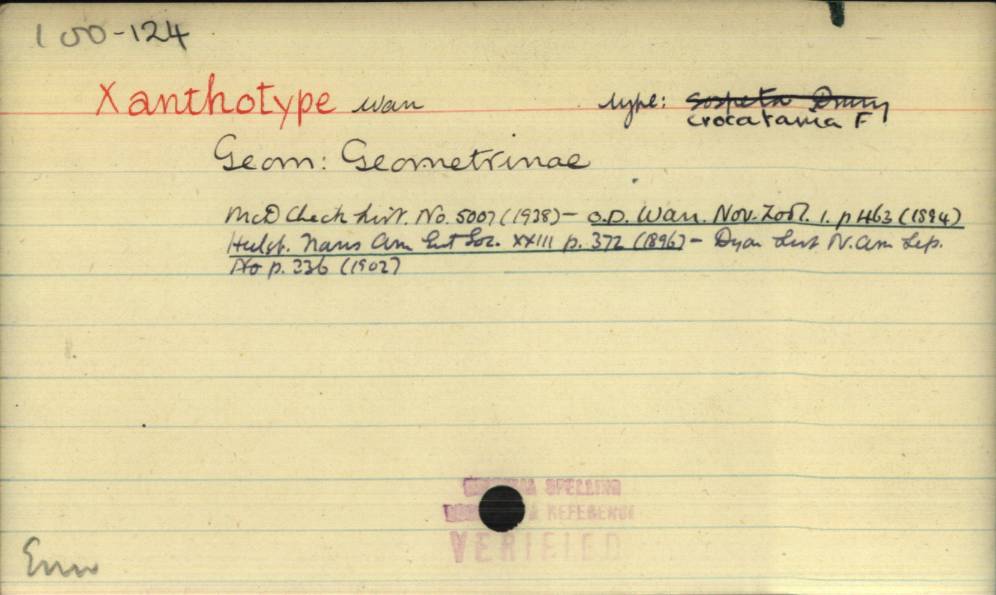 100-124
Xanthotype Warr type: Sospeta Drury
crocataria F
Geom: Geometrinae
McD Check List. No. 5007 (1938) - O.D. Warr. Nov. Zool. 1. p 463 (1894)
Hulst. Trans Am Ent Soc. XXIII p. 372 (1896) - Dyar List N. Am Lep.
No p. 336 (1902)
SPELLING
REFERENCE
VERIFIED
Enno